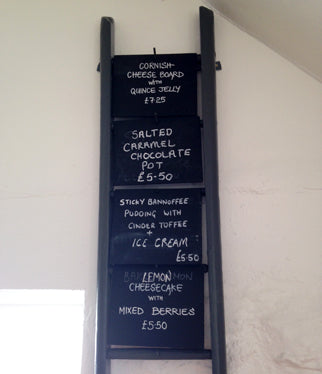 CORNISH
CHEESE BOARD
WITH
QUINCE JELLY
£7.25
SALTED
CARAMEL
CHOCOLATE
POT
£5.50
STICKY BANNOFFEE
PUDDING WITH
CINDER TOFFEE
+
ICE CREAM
£5.50
LEMON
CHEESECAKE
WITH
MIXED BERRIES
£5.50